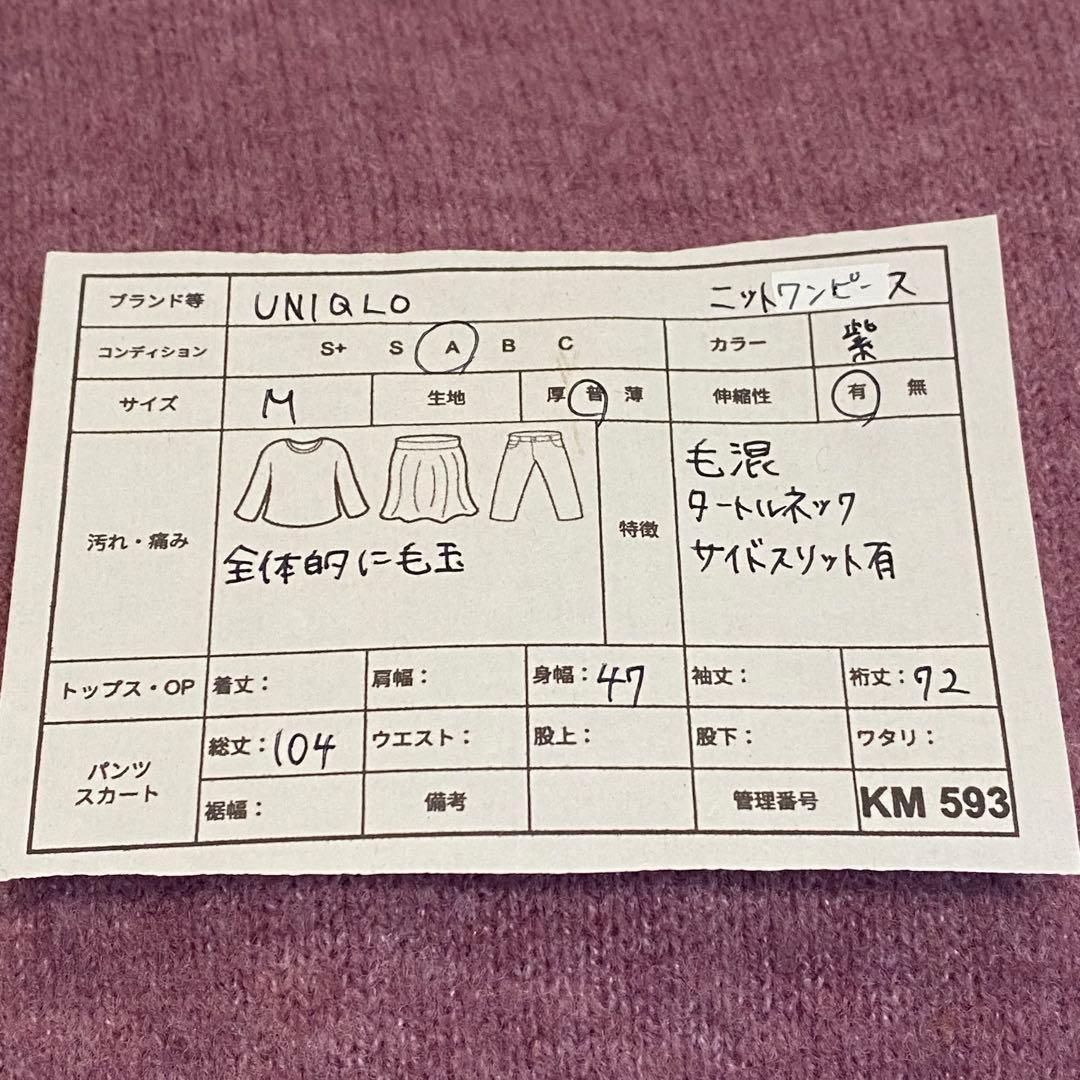 ブランド等 UNIQLO ニットワンピース
コンディション S+ S A B C カラー 紫
サイズ M 生地 厚 普 薄 伸縮性 有 無
汚れ・痛み 全体的に毛玉 特徴 毛混
タートルネック
サイドスリット有
トップス・OP 着丈: 肩幅: 身幅:47 袖丈: 裄丈:72
パンツ スカート 総丈:104 ウエスト: 股上: 股下: ワタリ:
裾幅: 備考 管理番号 KM 593